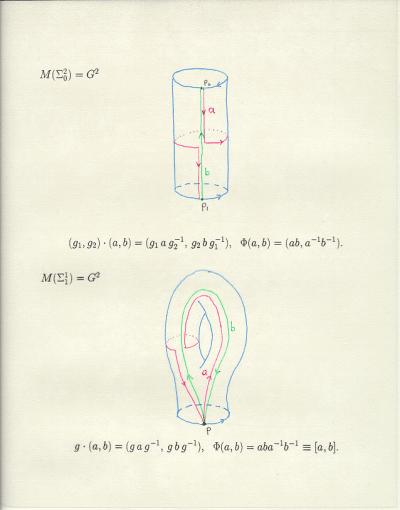 M(Σ₀²) = G²
p₀
a
b
p₁
(g₁, g₂) · (a, b) = (g₁ a g₂⁻¹, g₂ b g₁⁻¹), Φ(a, b) = (ab, a⁻¹b⁻¹).
M(Σ₁¹) = G²
b
a
p
g · (a, b) = (g a g⁻¹, g b g⁻¹), Φ(a, b) = aba⁻¹b⁻¹ ≡ [a, b].